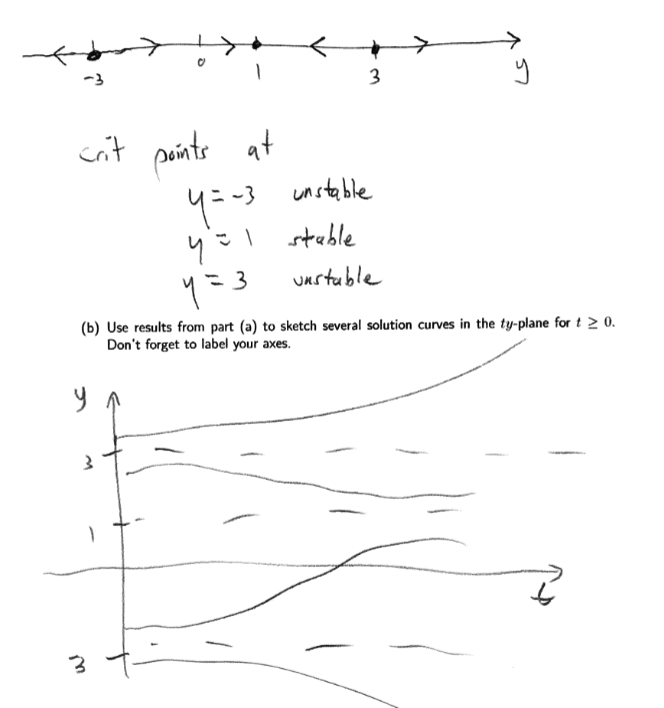 -3 0 1 3 y
crit points at
y = -3 unstable
y = 1 stable
y = 3 unstable
(b) Use results from part (a) to sketch several solution curves in the ty-plane for t ≥ 0.
Don't forget to label your axes.
y
3
1
t
3